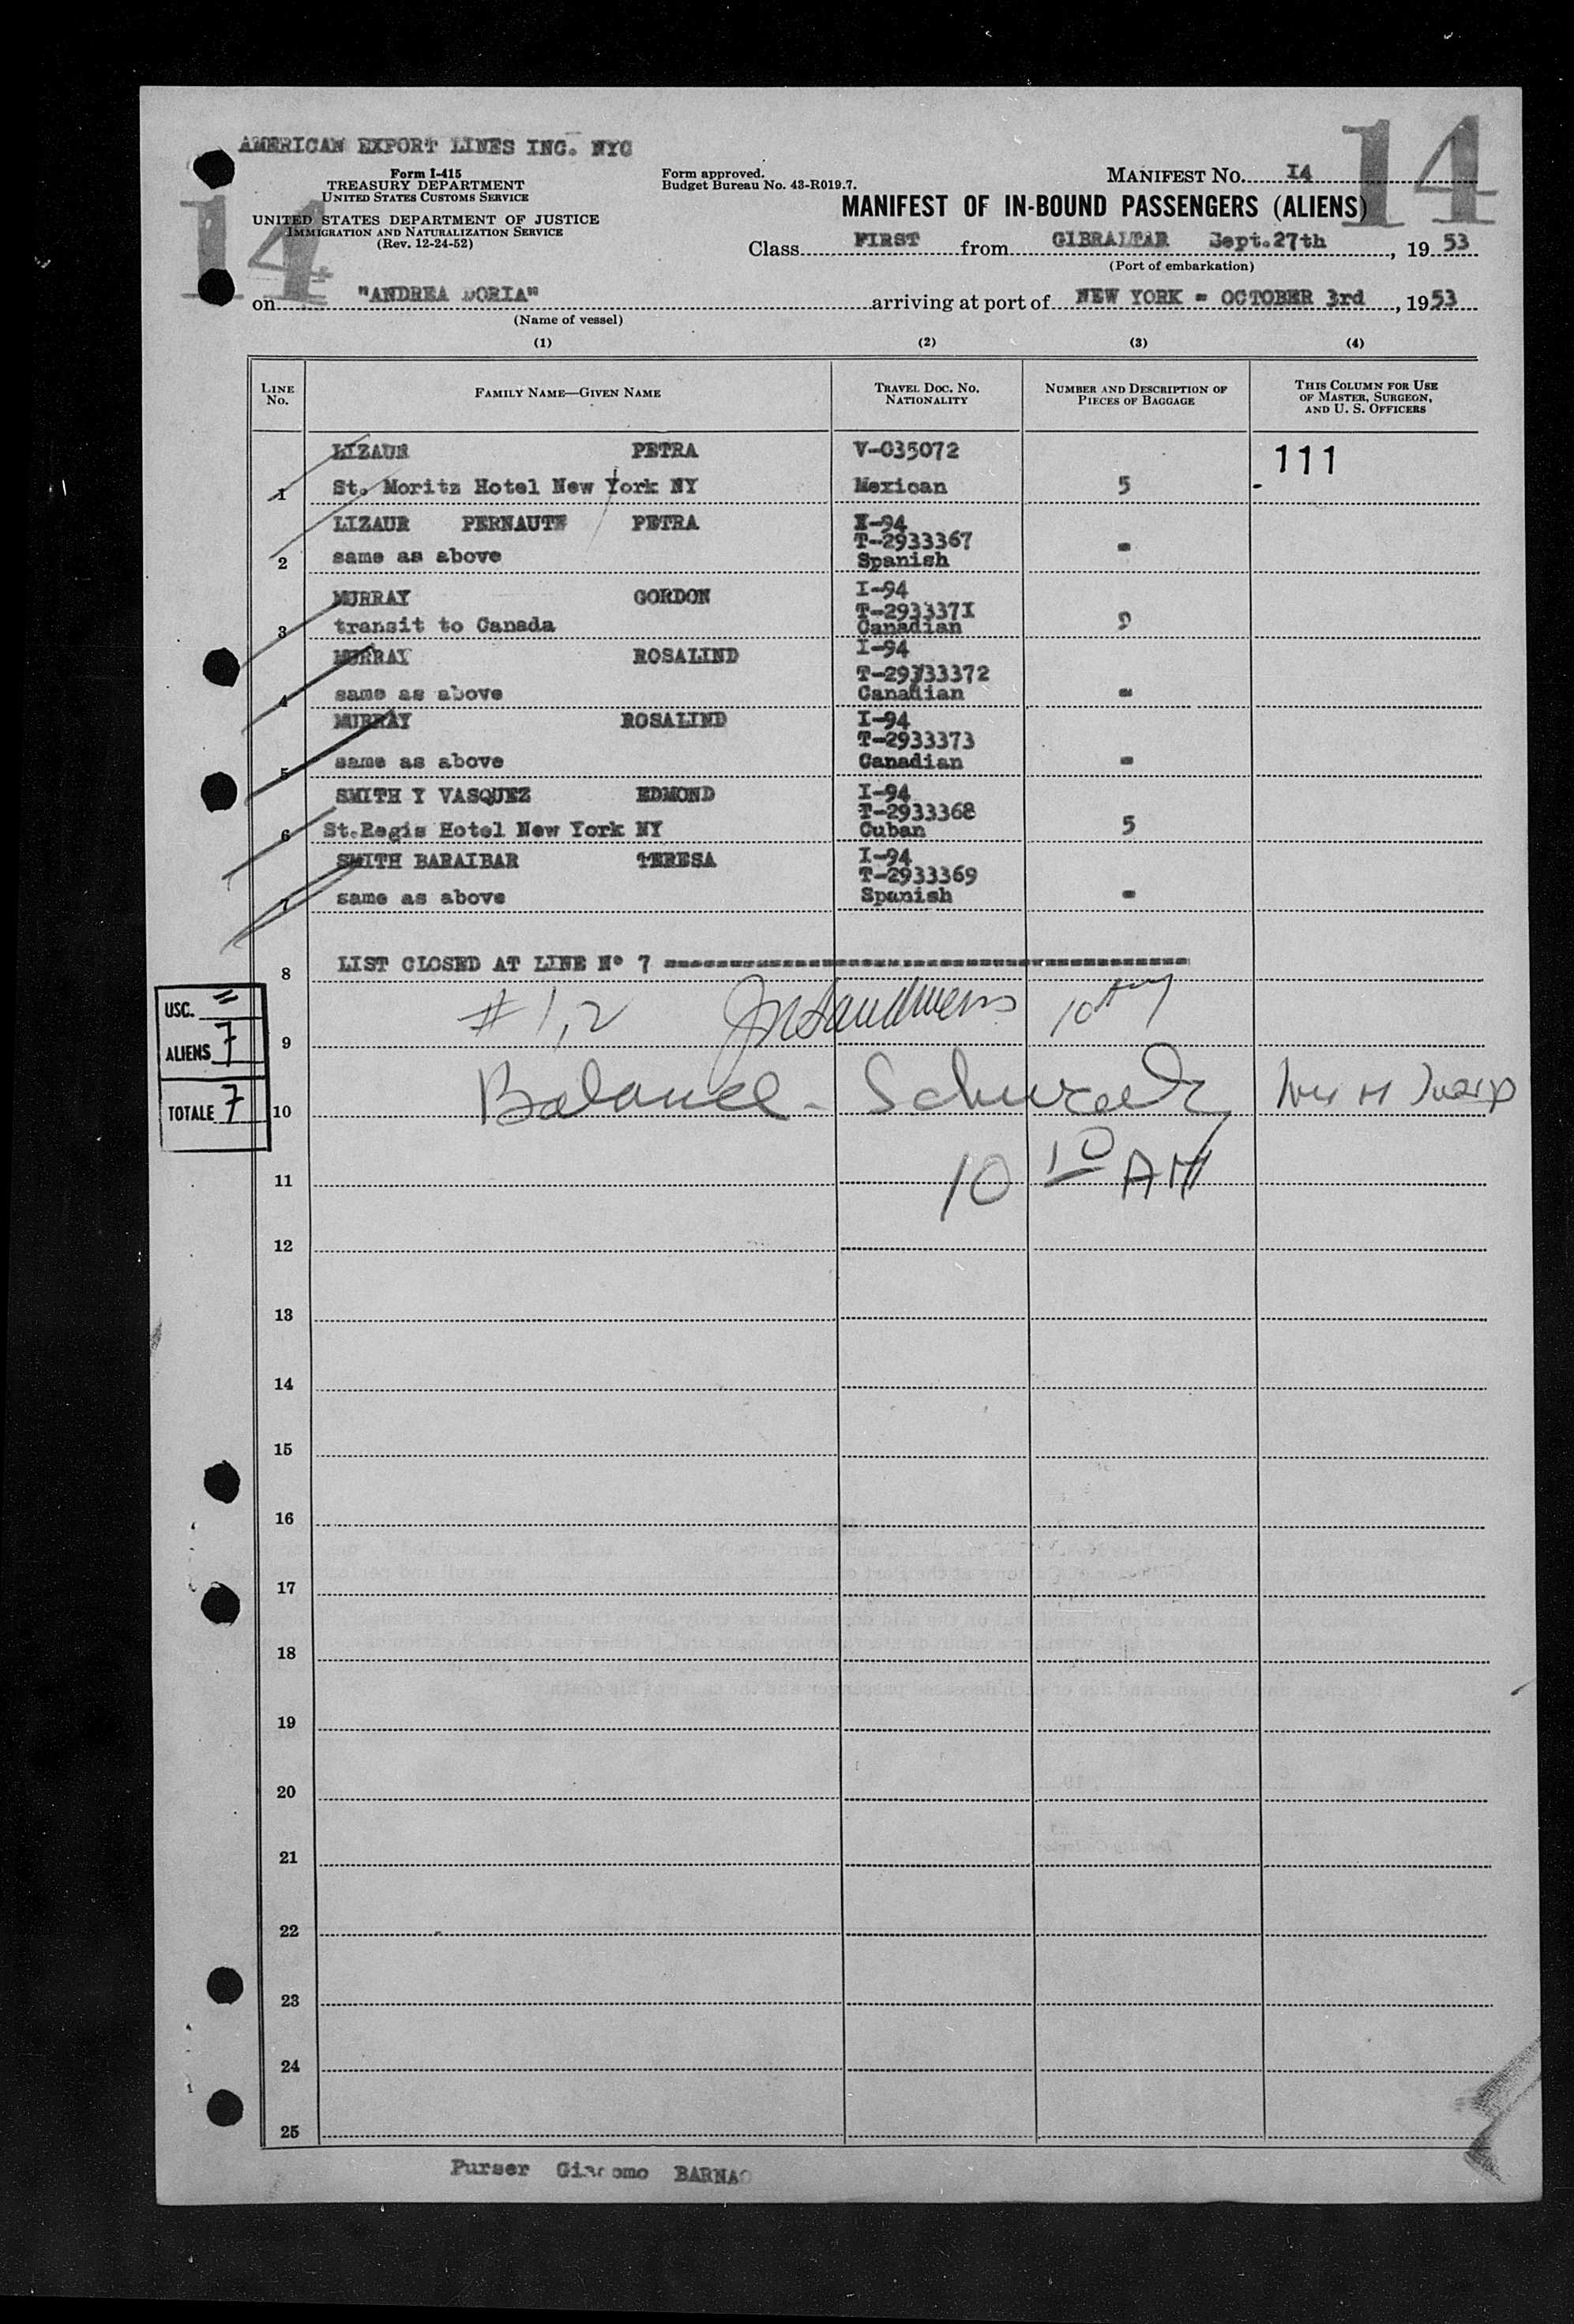 AMERICAN EXPORT LINES INC. NYC
14
Form I-415
TREASURY DEPARTMENT
UNITED STATES CUSTOMS SERVICE
UNITED STATES DEPARTMENT OF JUSTICE
IMMIGRATION AND NATURALIZATION SERVICE
(Rev. 12-24-52)
14
Form approved.
Budget Bureau No. 43-R019.7.
MANIFEST NO. I4
MANIFEST OF IN-BOUND PASSENGERS (ALIENS)
Class FIRST from GIBRALTAR Sept.27th, 19 53
(Port of embarkation)
on "ANDREA DORIA" arriving at port of NEW YORK - OCTOBER 3rd, 1953
(Name of vessel)
(1) (2) (3) (4)
LINE NO. FAMILY NAME—GIVEN NAME TRAVEL DOC. NO. NATIONALITY NUMBER AND DESCRIPTION OF PIECES OF BAGGAGE THIS COLUMN FOR USE OF MASTER, SURGEON, AND U. S. OFFICERS
LIZAUR PETRA V-035072 111
1 St. Moritz Hotel New York NY Mexican 5 -
LIZAUR PERNAUTE PETRA I-94
T-2933367
2 same as above Spanish -
MURRAY GORDON I-94
T-293337I
3 transit to Canada Canadian 9
MURRAY ROSALIND I-94
T-29333372
4 same as above Canadian -
MURRAY ROSALIND I-94
T-2933373
5 same as above Canadian -
SMITH Y VASQUEZ EDMOND I-94
T-2933368
6 St.Regis Hotel New York NY Cuban 5
SMITH BARAIBAR TERESA I-94
T-2933369
7 same as above Spanish -
8 LIST CLOSED AT LINE Nº 7 --------------------
USC. =
ALIENS 7
TOTALE 7
9 # 1,2
10 Balance -
11 10 10 AM
12
13
14
15
16
17
18
19
20
21
22
23
24
25
Purser Giacomo BARNAO